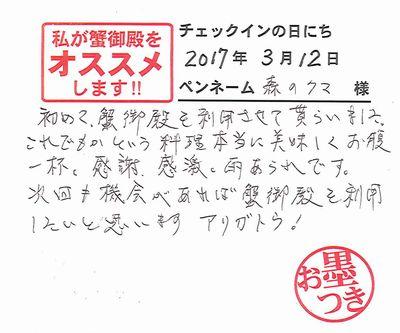 私が蟹御殿を
オススメ
します!!
チェックインの日にち
2017年 3月12日
ペンネーム 森のクマ 様
初めて、蟹御殿を利用させて貰らいました
これでもかという料理本当に美味しくお腹
一杯。感謝、感激。雨あられです。
次回も機会があれば蟹御殿を利用
したいと思います アリガトウ!
お墨つき